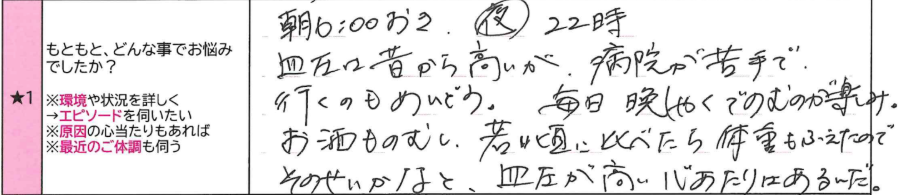 ★1
もともと、どんな事でお悩み
でしたか？
※環境や状況を詳しく
→エピソードを伺いたい
※原因の心当たりもあれば
※最近のご体調も伺う
朝6:00おき. 夜 22時
血圧は昔から高いが、病院が苦手で.
行くのもめんどう。 毎日 晩しゃくでのむのが楽しみ。
お酒ものむし、若い頃に比べたら体重もふえたので
そのせいかなと、血圧が高い心あたりはあるんだ。